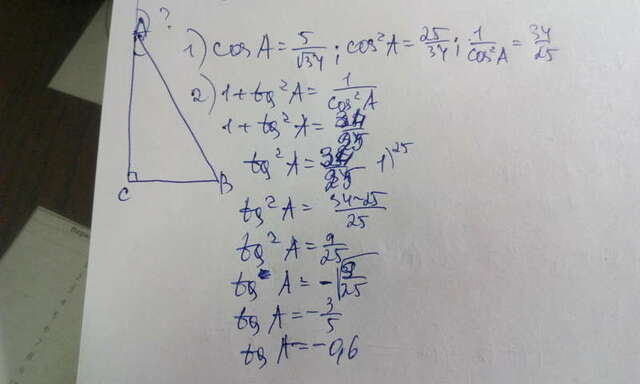 A ?
C B
1) cos A = 5/√34 ; cos² A = 25/34 ; 1/cos² A = 34/25
2) 1 + tg² A = 1/cos² A
1 + tg² A = 34/25
tg² A = 34/25 - 1) 25
tg² A = 34-25/25
tg² A = 9/25
tg A = -√9/25
tg A = -3/5
tg A = -0,6